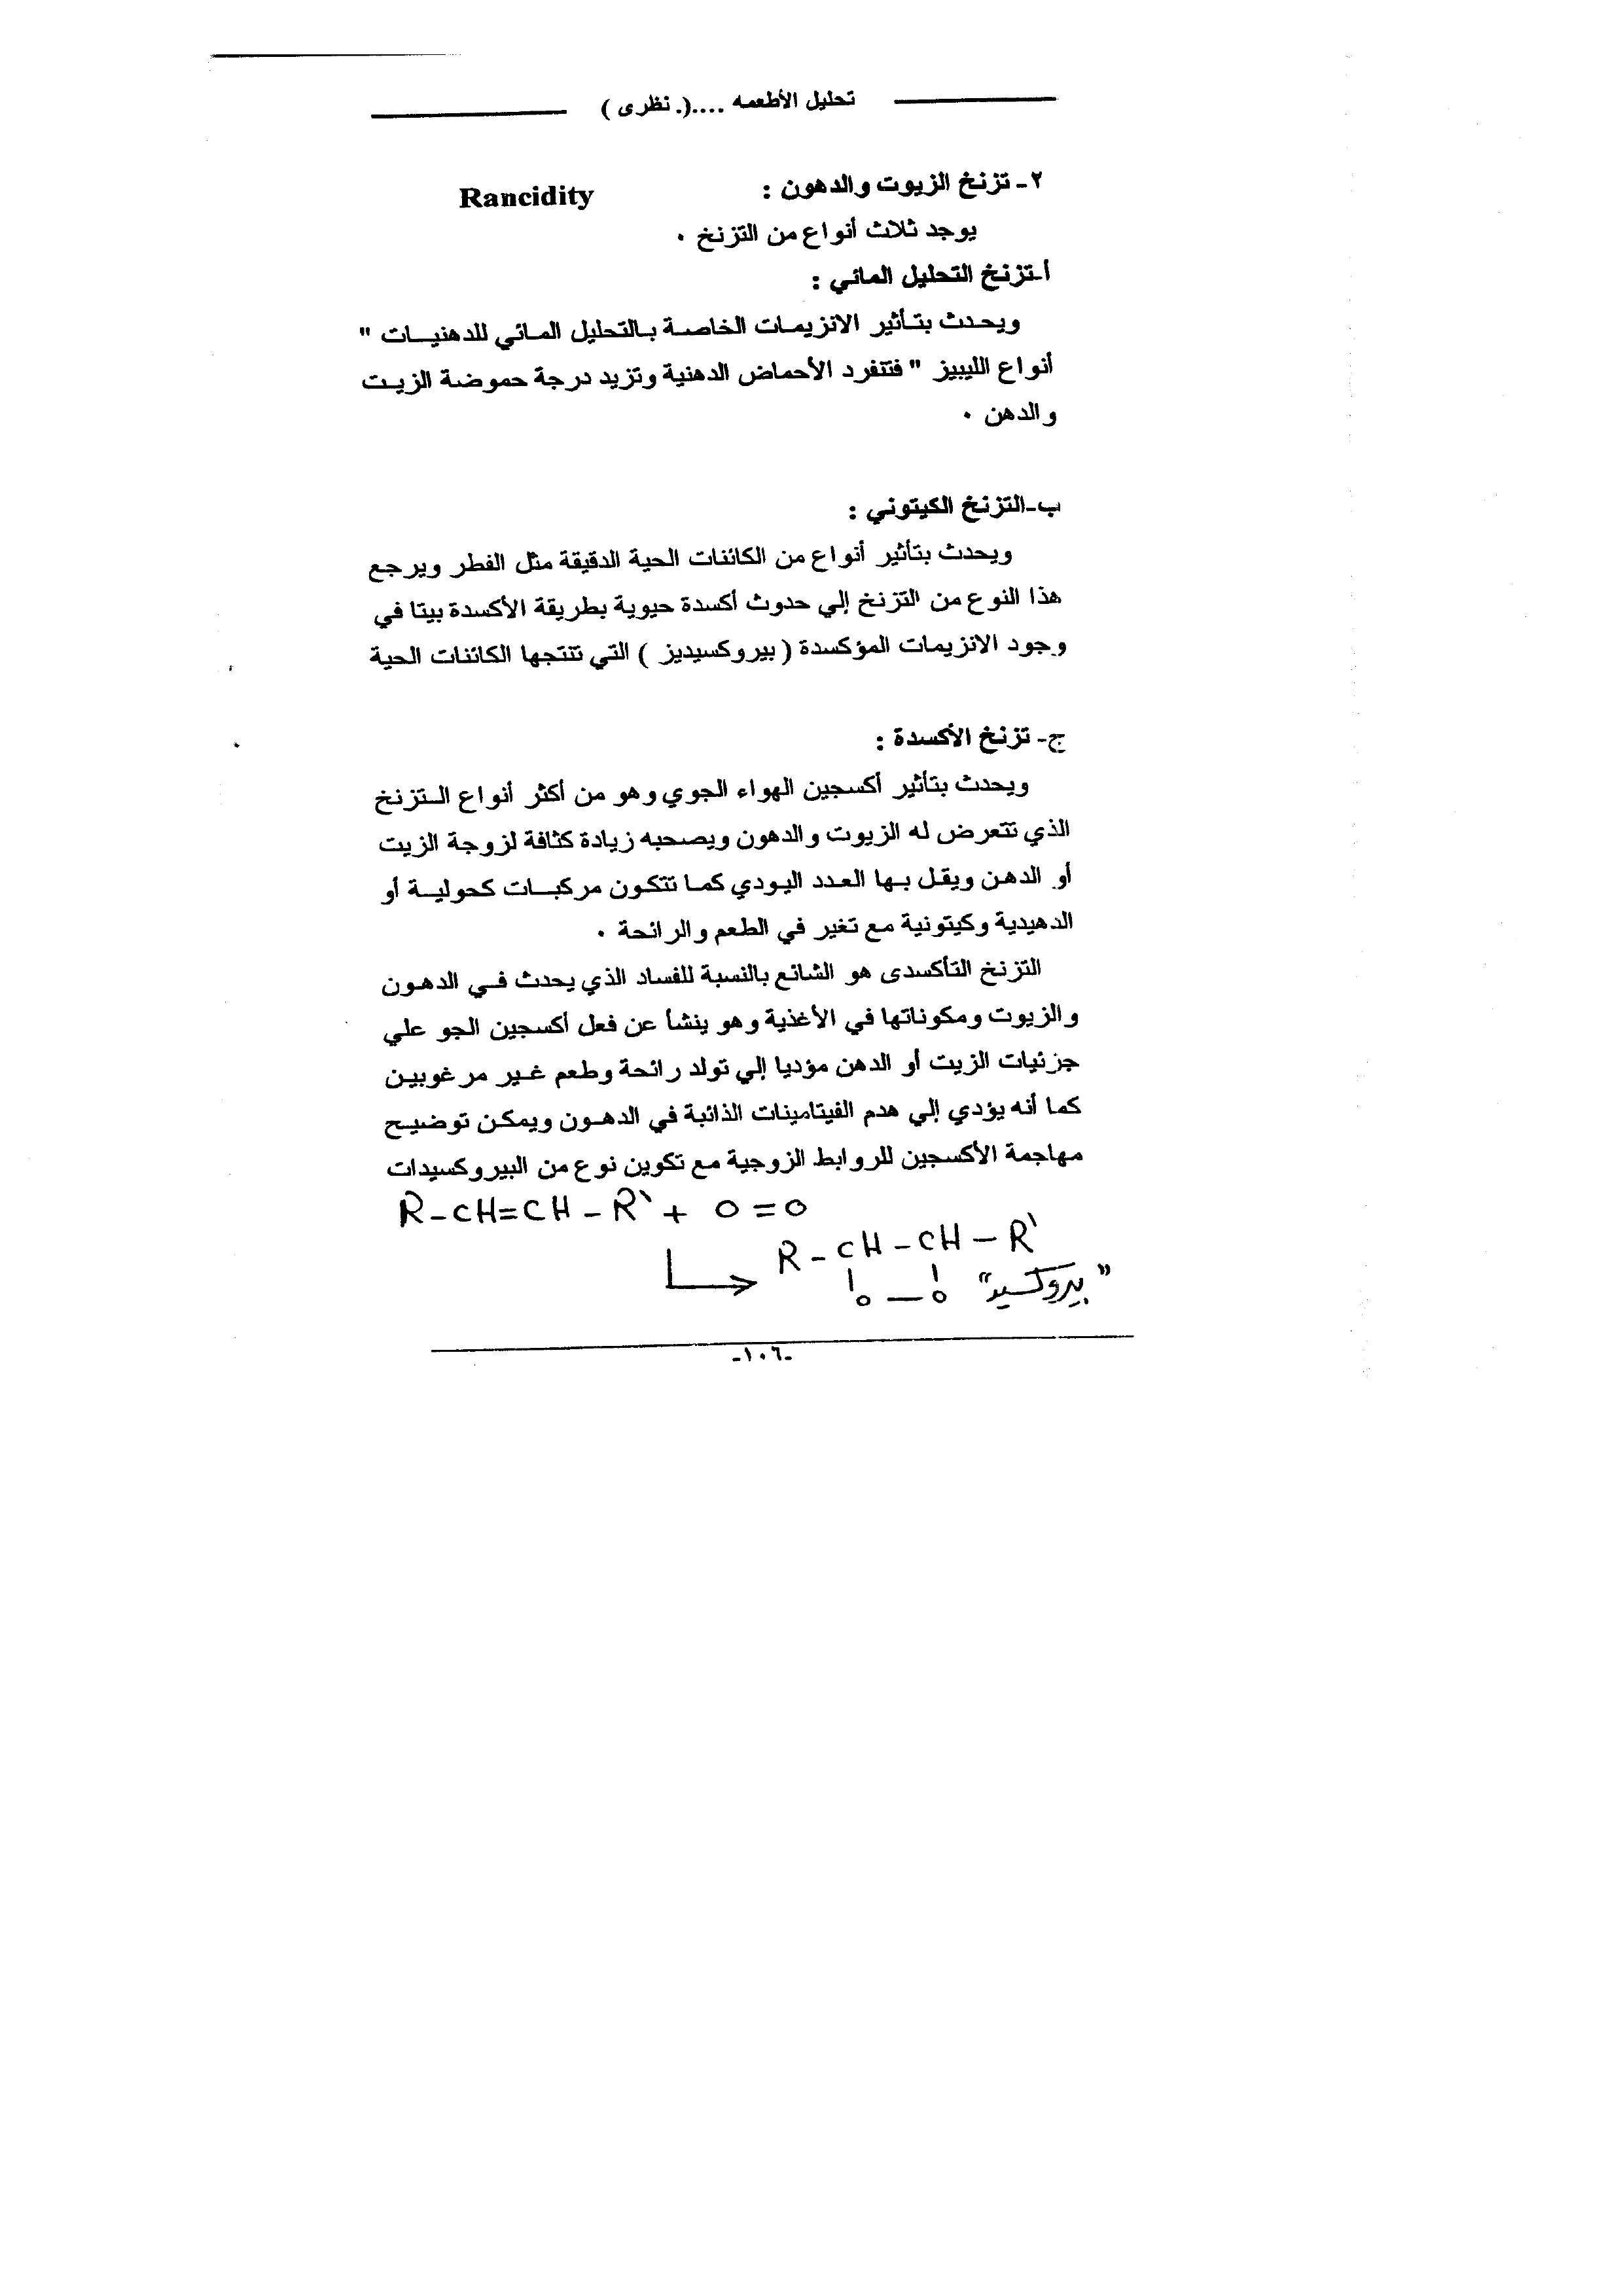 تحليل الأطعمه ....(. نظرى )
٢- تزنخ الزيوت والدهون : Rancidity
يوجد ثلاث أنواع من التزنخ ٠
أ-تزنخ التحليل المائي :
ويحدث بتأثير الانزيمات الخاصة بالتحليل المائي للدهنيات "
أنواع الليبيز " فتنفرد الأحماض الدهنية وتزيد درجة حموضة الزيت
والدهن ٠
ب-التزنخ الكيتوني :
ويحدث بتأثير أنواع من الكائنات الحية الدقيقة مثل الفطر ويرجع
هذا النوع من التزنخ إلي حدوث أكسدة حيوية بطريقة الأكسدة بيتا في
وجود الانزيمات المؤكسدة ( بيروكسيديز ) التي تنتجها الكائنات الحية
ج- تزنخ الأكسدة :
ويحدث بتأثير أكسجين الهواء الجوي وهو من أكثر أنواع التزنخ
الذي تتعرض له الزيوت والدهون ويصحبه زيادة كثافة لزوجة الزيت
أو الدهن ويقل بها العدد اليودي كما تتكون مركبات كحولية أو
الدهيدية وكيتونية مع تغير في الطعم والرائحة ٠
التزنخ التأكسدى هو الشائع بالنسبة للفساد الذي يحدث في الدهون
والزيوت ومكوناتها في الأغذية وهو ينشأ عن فعل أكسجين الجو علي
جزئيات الزيت أو الدهن مؤديا إلي تولد رائحة وطعم غير مرغوبين
كما أنه يؤدي إلي هدم الفيتامينات الذائبة في الدهون ويمكن توضيح
مهاجمة الأكسجين للروابط الزوجية مع تكوين نوع من البيروكسيدات
R-CH=CH-R` + O=O
R-CH-CH-R`
O—O "بيروكسيد"
-١٠٦-